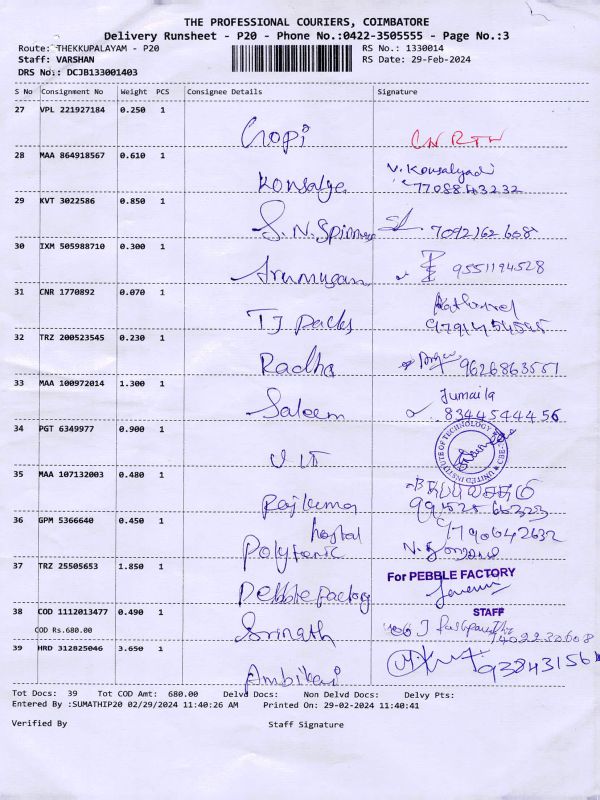 THE PROFESSIONAL COURIERS, COIMBATORE
Delivery Runsheet - P20 - Phone No.:0422-3505555 - Page No.:3
Route: THEKKUPALAYAM - P20 RS No.: 1330014
Staff: VARSHAN RS Date: 29-Feb-2024
DRS No.: DCJB133001403
S No Consignment No Weight PCS Consignee Details Signature
27 VPL 221927184 0.250 1
Gopi CN RTN
28 MAA 864918567 0.610 1
V. Kousalyadi
Kousalya 7708843232
29 KVT 3022586 0.850 1
S.N. Spinners 7092162608
30 IXM 505988710 0.300 1
Arumugam 9551194528
31 CNR 1770892 0.070 1
TJ Packs
32 TRZ 200523545 0.230 1
Radha 9626863551
33 MAA 100972014 1.300 1
Jumaila
Saleem 8344544456
34 PGT 6349977 0.900 1
UNITED INSTITUTE OF TECHNOLOGY
UIT
35 MAA 107132003 0.480 1
Rajkumar
36 GPM 5366640 0.450 1
hostal
Polytenic
37 TRZ 25505653 1.850 1
For PEBBLE FACTORY
Pebble Factory
STAFF
38 COD 1112013477 0.490 1
COD Rs.680.00
Srinath
39 HRD 312825046 3.650 1
Ambikai
Tot Docs: 39 Tot COD Amt: 680.00 Delvd Docs: Non Delvd Docs: Delvy Pts:
Entered By :SUMATHIP20 02/29/2024 11:40:26 AM Printed On: 29-02-2024 11:40:41
Verified By Staff Signature